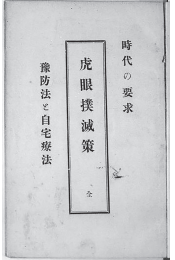 時代の要求
虎眼撲滅策 全
豫防法と自宅療法